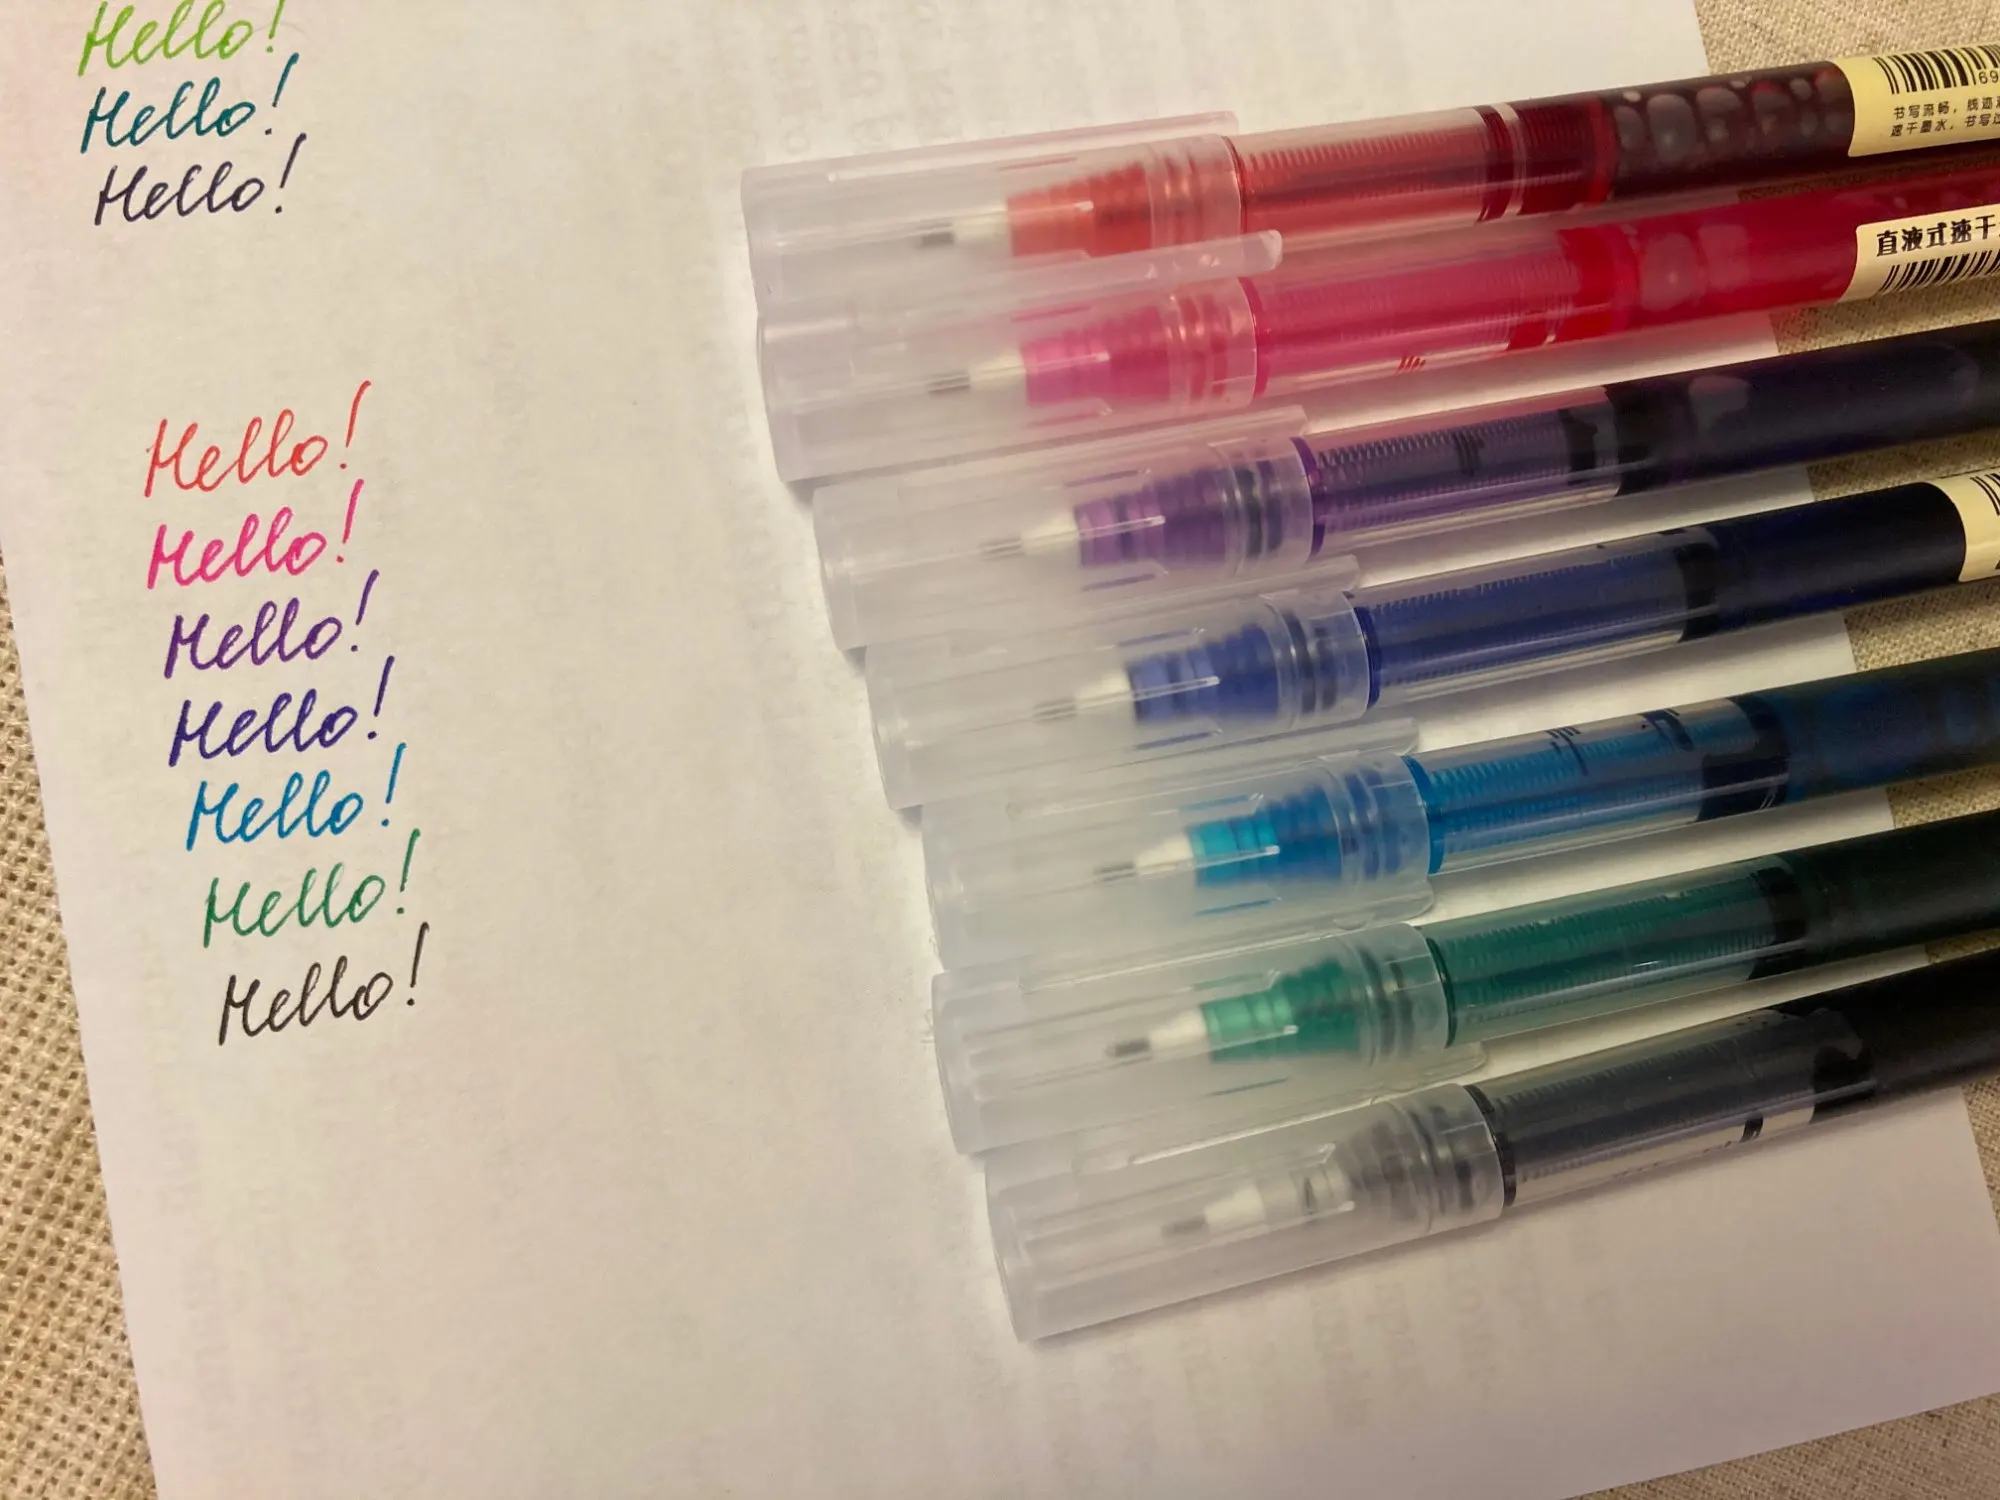 Hello!
Hello!
Hello!
Hello!
Hello!
Hello!
Hello!
Hello!
Hello!
Hello!
69
书写流畅,线迹
速干墨水,书写
直液式速干